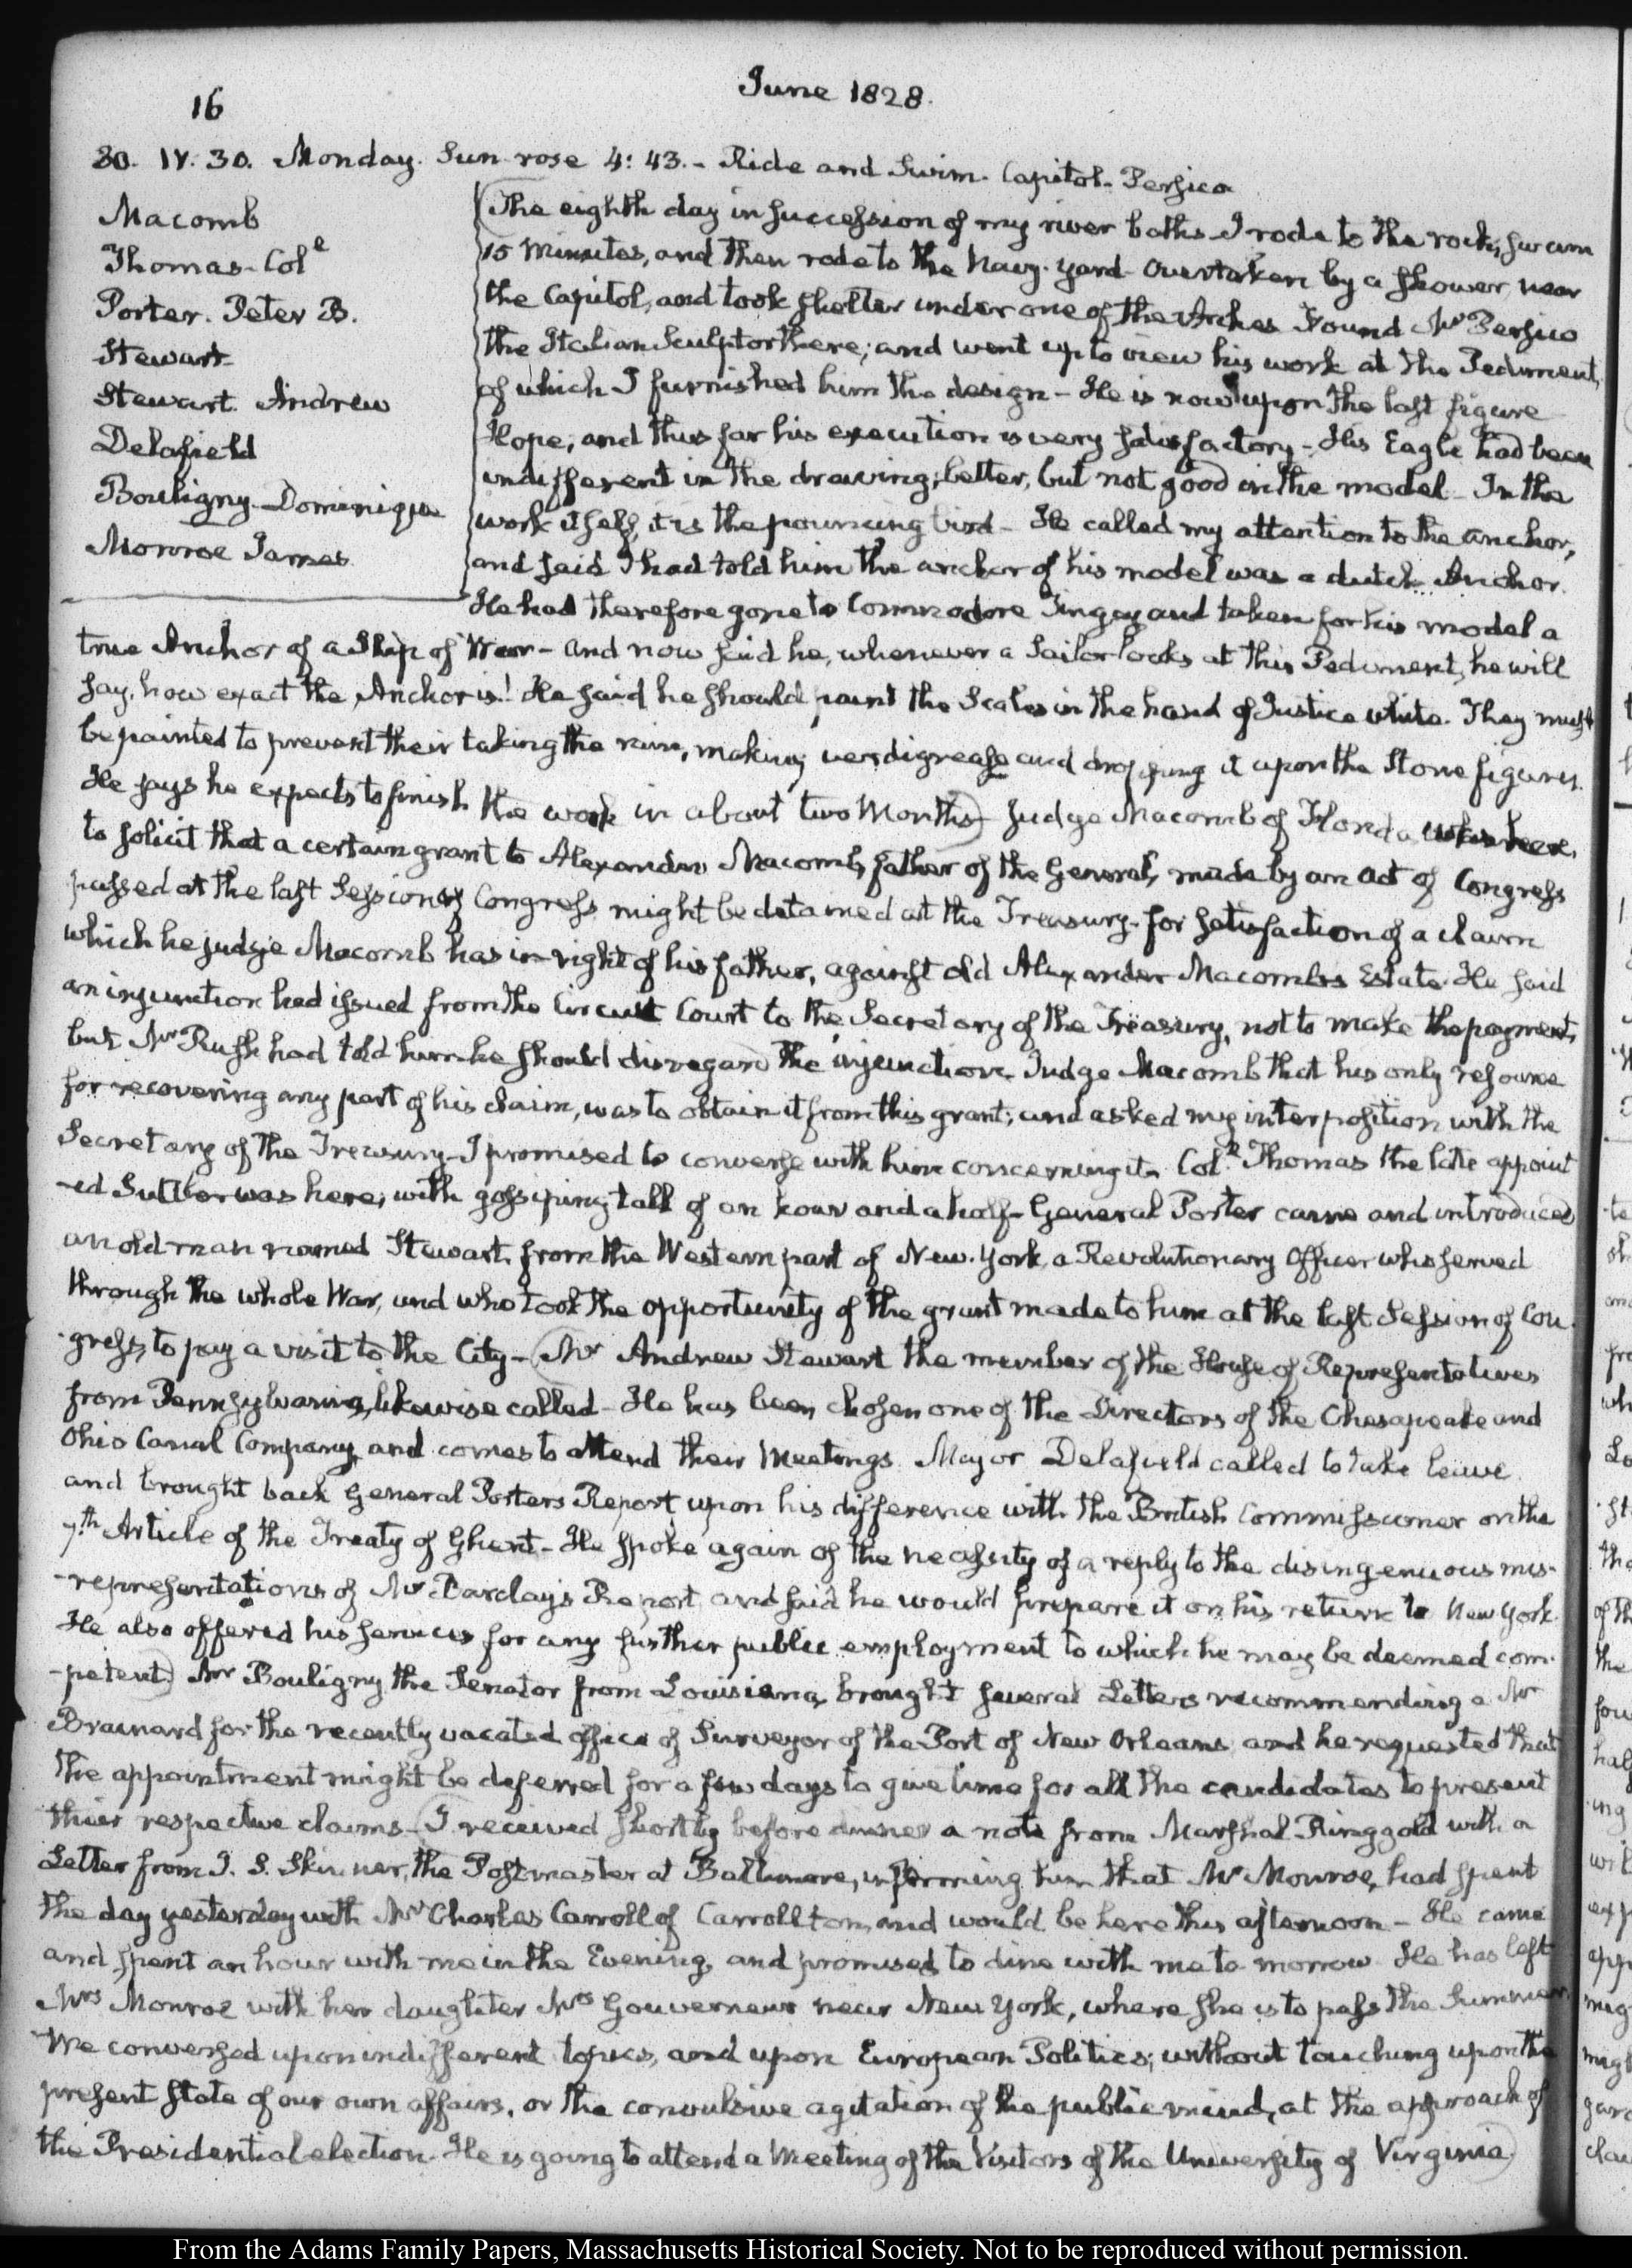 16
June 1828.
30. IV. 30. Monday. Sun rose 4: 43. - Ride and Swim. Capitol. Persico
Macomb
Thomas. Col.e
Porter. Peter B.
Stewart
Stewart. Andrew
Delafield
Bouligny. Dominique
Monroe James
(The eighth day in succession of my river baths I rode to the rock, swam
15 Minutes, and then rode to the Navy-Yard - Overtaken by a shower near
the Capitol, and took shelter under one of the Arches Found Mr Persico
the Italian Sculptor there; and went up to view his work at the Pediment,
of which I furnished him the design - He is now upon the last figure
Hope; and thus far his execution is very satisfactory - His Eagle had been
indifferent in the drawing; better, but not good in the model - In the
work itself, it is the pouncing bird - He called my attention to the anchor,
and said I had told him the anchor of his model was a dutch Anchor.
He had therefore gone to Commodore Tingey and taken for his model a
true Anchor of a Ship of War - and now said he, whenever a Sailor looks at this Pediment, he will
say, how exact the Anchor is! He said he should paint the Scales in the hand of Justice white. They must
be painted to prevent their taking the rain, making verdigrease and dropping it upon the Stone figures.
He says he expects to finish the work in about two Months) Judge Macomb of Florida was here,
to solicit that a certain grant to Alexander Macomb, father of the General, made by an Act of Congress
passed at the last Session of Congress might be detained at the Treasury - for satisfaction of a claim
which he judge Macomb has in right of his father, against old Alexander Macomb's Estate. He said
an injunction had issued from the Circuit Court to the Secretary of the Treasury, not to make the payment,
but Mr Rush had told him he should disregard the injunction. Judge Macomb that his only resource
for recovering any part of his claim, was to obtain it from this grant; and asked my interposition with the
Secretary of the Treasury - I promised to converse with him concerning it. Col.l Thomas the late appoint
-ed Suttler was here, with gossiping talk of an hour and a half - General Porter came and introduced
an old man named Stewart from the Western part of New-York, a Revolutionary Officer who served
through the whole War, and who took the opportunity of the grant made to him at the last Session of Con
-gress, to pay a visit to the City - (Mr Andrew Stewart the member of the House of Representatives
from Pennsylvania, likewise called - He has been chosen one of the Directors of the Chesapeake and
Ohio Canal Company, and comes to attend their Meetings. Major Delafield called to take leave
and brought back General Porters Report upon his difference with the British Commissioner on the
7.th Article of the Treaty of Ghent - He spoke again of the necessity of a reply to the disingenuous mis-
-representations of Mr Barclay's Report, and said he would prepare it on his return to New York.
He also offered his services for any further public employment to which he may be deemed com-
-petent) Mr Bouligny the Senator from Louisiana, brought several Letters recommending a Mr
Brainard for the recently vacated office of Surveyor of the Port of New Orleans, and he requested that
the appointment might be deferred for a few days to give time for all the candidates to present
their respective claims - (I received shortly before dinner a note from Marshal Ringgold with a
Letter from J. S. Skinner, the Postmaster at Baltimore, informing him that Mr Monroe, had spent
the day yesterday with Mr Charles Carroll of Carrollton, and would be here this afternoon - He came
and spent an hour with me in the Evening, and promised to dine with me to morrow. He has left
Mrs Monroe with her daughter Mrs Gouverneur near New York, where she is to pass the Summer.
We conversed upon indifferent topics, and upon European Politics; without touching upon the
present State of our own affairs, or the convulsive agitation of the public mind, at the approach of
the Presidential election. He is going to attend a Meeting of the Visitors of the University of Virginia.)
From the Adams Family Papers, Massachusetts Historical Society. Not to be reproduced without permission.